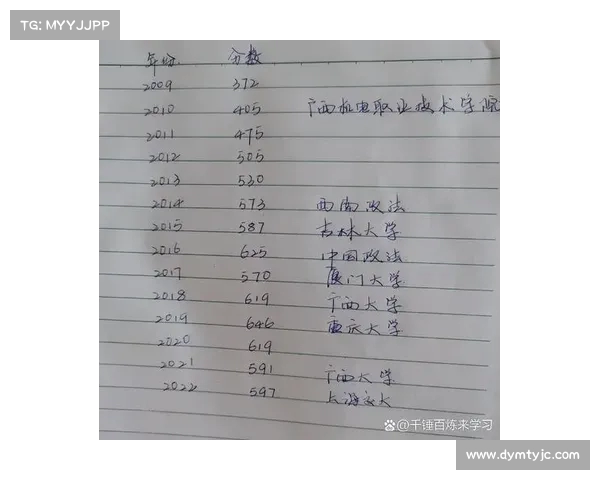 TG: MYYJJPP
年份 分数
2009 372
2010 405 广西机电职业技术学院
2011 475
2012 505
2013 530
2014 573 西南政法
2015 587 吉林大学
2016 625 中国政法
2017 570 厦门大学
2018 619 广西大学
2019 646 重庆大学
2020 619
2021 591 广西大学
2022 597 上海交大
@千锤百炼来学习
www.dymtyjc.com